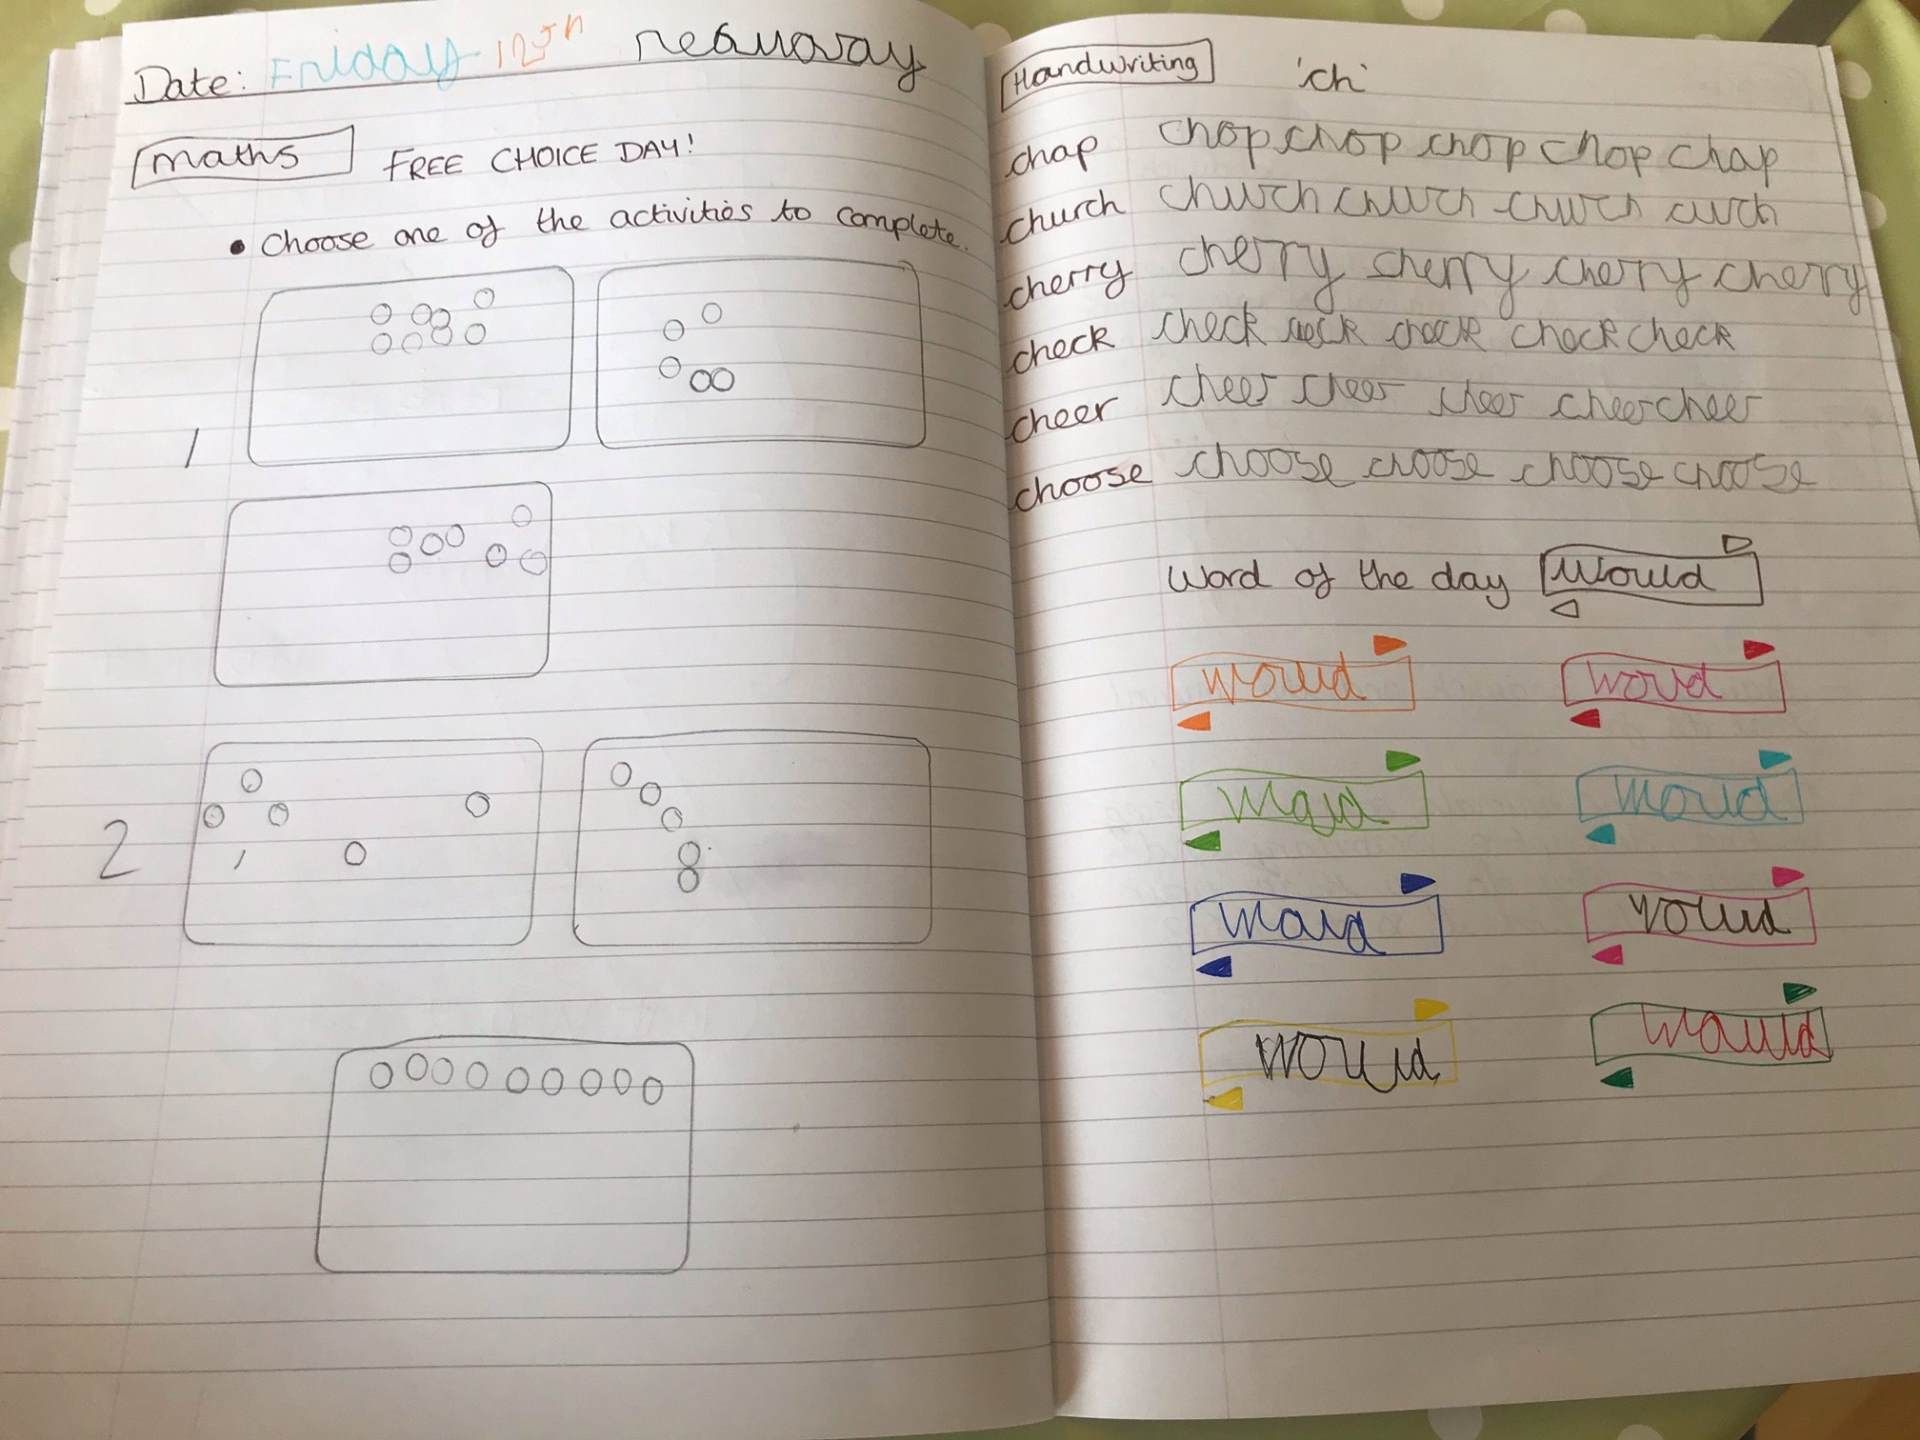 Date: Friday 12th
maths FREE CHOICE DAY!
• Choose one of the activities to complete.
1
2
Handwriting 'ch'
chap chop chop chop chop chap
church church church church curch
cherry cherry cherry cherry cherry
check check check check
cheer cheer cheer cheer cheer cheer
choose choose choose choose choose
Word of the day Would
would would
would would
would would
would would